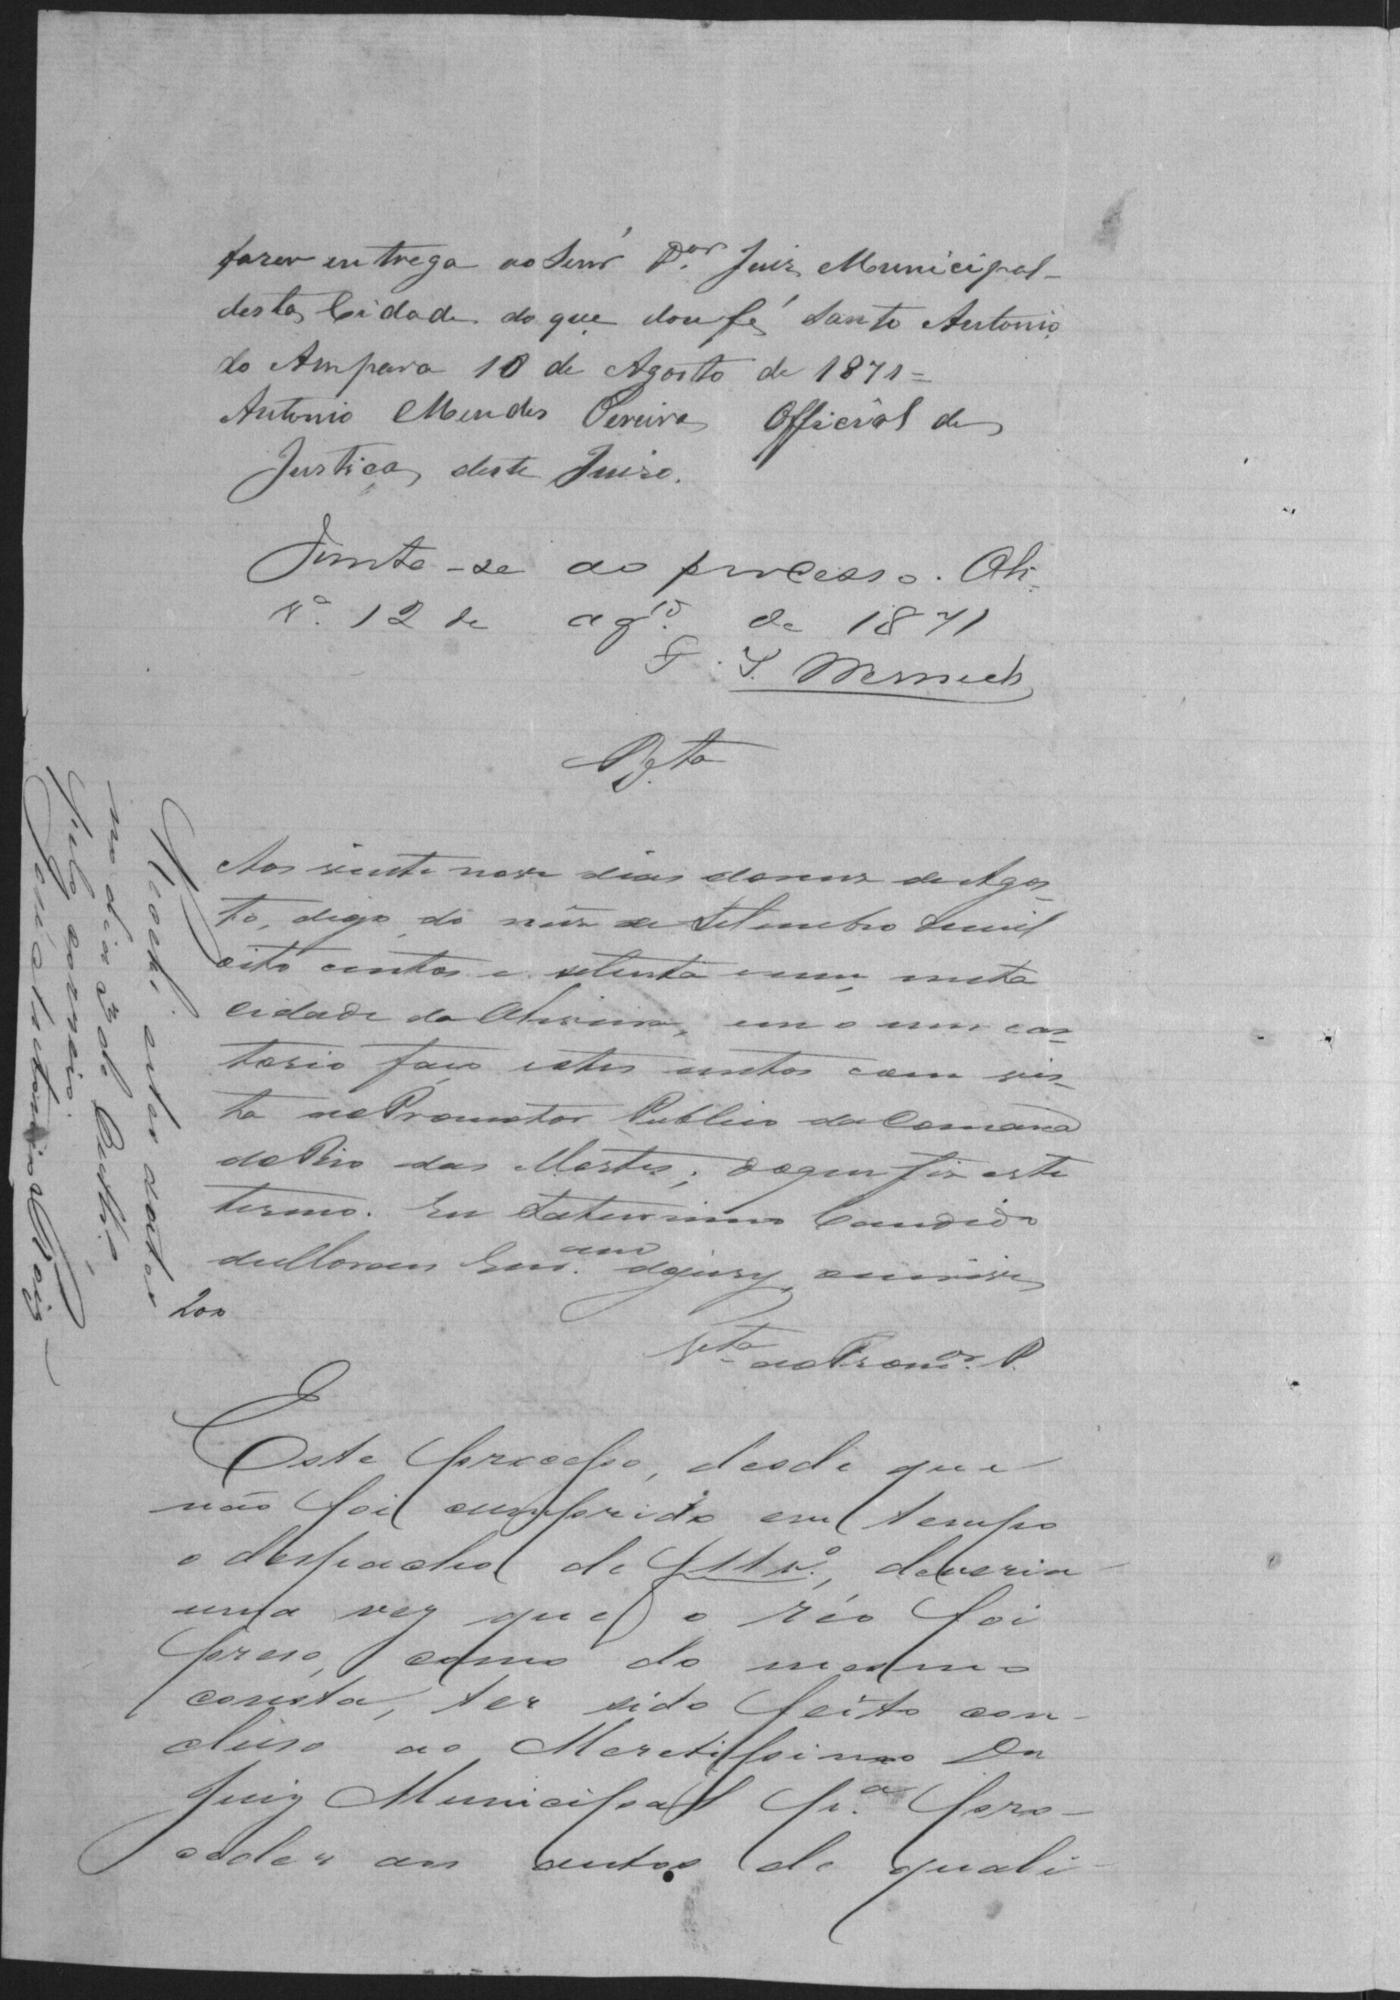 fazer entrega ao Senr Dor Juiz Municipal
desta Cidade do que dou fé Santo Antonio
do Amparo 10 de Agosto de 1871=
Antonio Mendes Pereira Official de
Justiça deste Juizo.
Junte-se ao processo. Oli-
vra. 12 de agto. de 1871
Aos vinte nove dias do mez de Agos
to, digo do mez de Setembro de mil
oito centos e setenta e um nesta
cidade da Oliveira, em o meu car-
torio faço estes autos com vis-
ta ao Promotor Publico da Comarca
do Rio das Mortes; do que fiz este
termo. Eu Saturnino Candido
de Moraes Escram do jury, escrevi
200
Vta ao Promor. P.
Este processo, desde que
não foi cumprido em tempo
o despacho de f 11 vo., deveria
uma vez que o réo foi
preso, como do mesmo
consta, ter sido feito con-
cluso ao Meretissimo Dr
Juiz Municipal pa. pro-
ceder aos autos de quali-
Recebi estes autos
no dia 3 de
pelo correio.
José Antonio